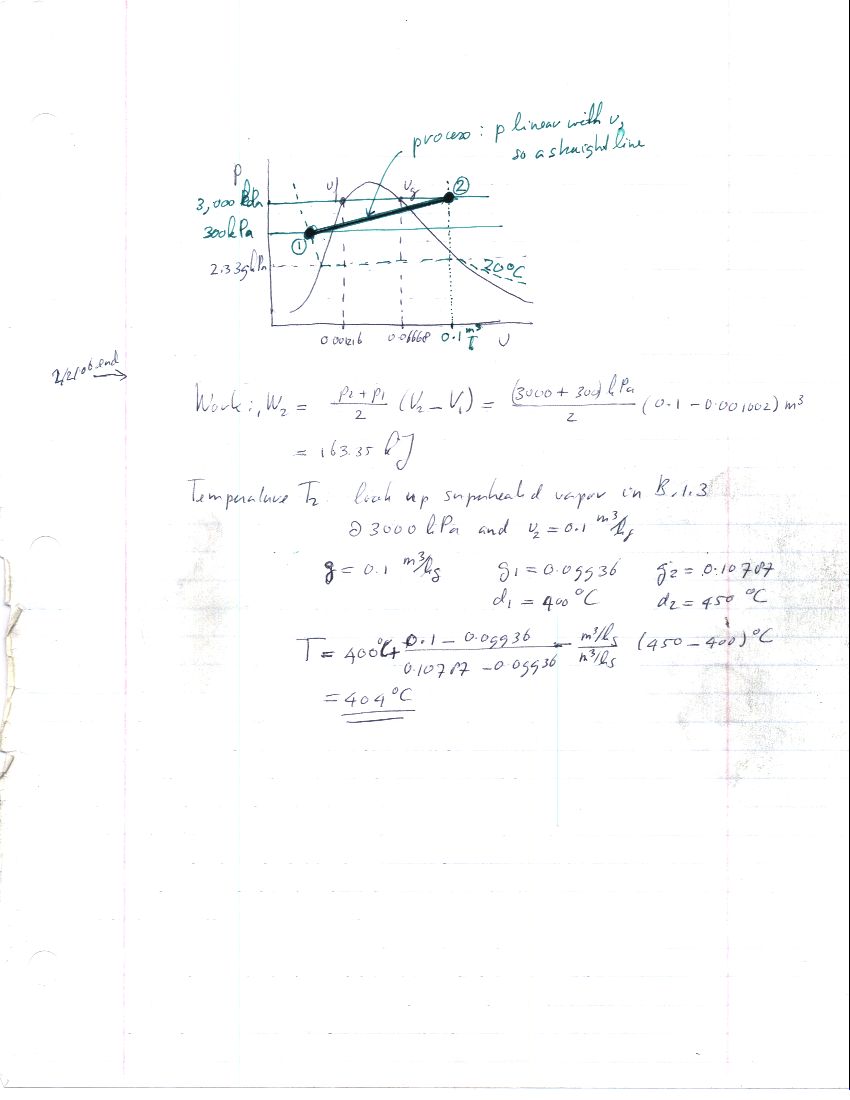 process : p linear with v,
so a straight line
P
3,000 kPa
vf
vg
②
300 kPa
①
2.339 kPa
20°C
0.001216
0.06668
0.1 m³
v
2/21/06 end
Work: ₁W₂ = (p₂ + p₁)/2 (V₂ – V₁) = (3000 + 300) kPa/2 (0.1 – 0.001002) m³
= 163.35 kJ
Temperature T₂ look up superheated vapor in B.1.3
@ 3000 kPa and v₂ = 0.1 m³/kg
g = 0.1 m³/kg g₁ = 0.09936 g₂ = 0.10787
d₁ = 400 °C d₂ = 450 °C
T = 400°C + (0.1 – 0.09936)/(0.10787 – 0.09936) (m³/kg)/(m³/kg) (450 – 400) °C
= 404 °C